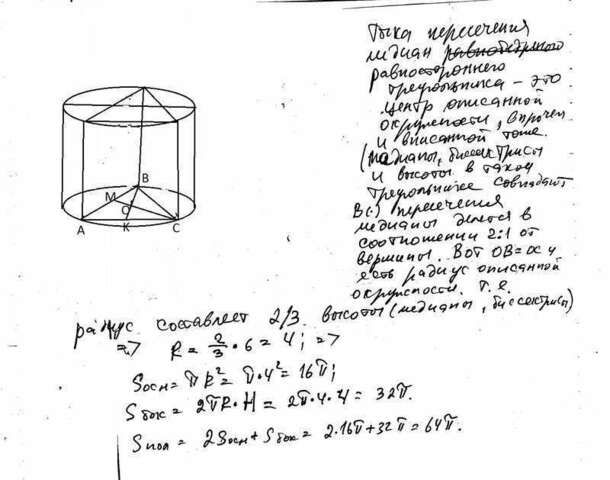 Точка пересечения
медиан равнобедренного
равностороннего
треугольника - это
центр описанной
окружности, впрочем
и вписанной тоже.
(медианы, биссектрисы
и высоты в таком
треугольнике совпадают
В (·) пересечения
медианы делятся в
соотношении 2:1 от
вершины. Вот OB=
есть радиус описанной
окружности. Т.е.
радиус составляет 2/3 высоты (медианы, биссектрисы)
=> R = 2/3 · 6 = 4; =>
Sосн = πR² = π·4² = 16π;
Sбок = 2πR·H = 2π·4·4 = 32π.
Sпол = 2Sосн + Sбок = 2·16π+32π = 64π.
B
M
O
A
K
C